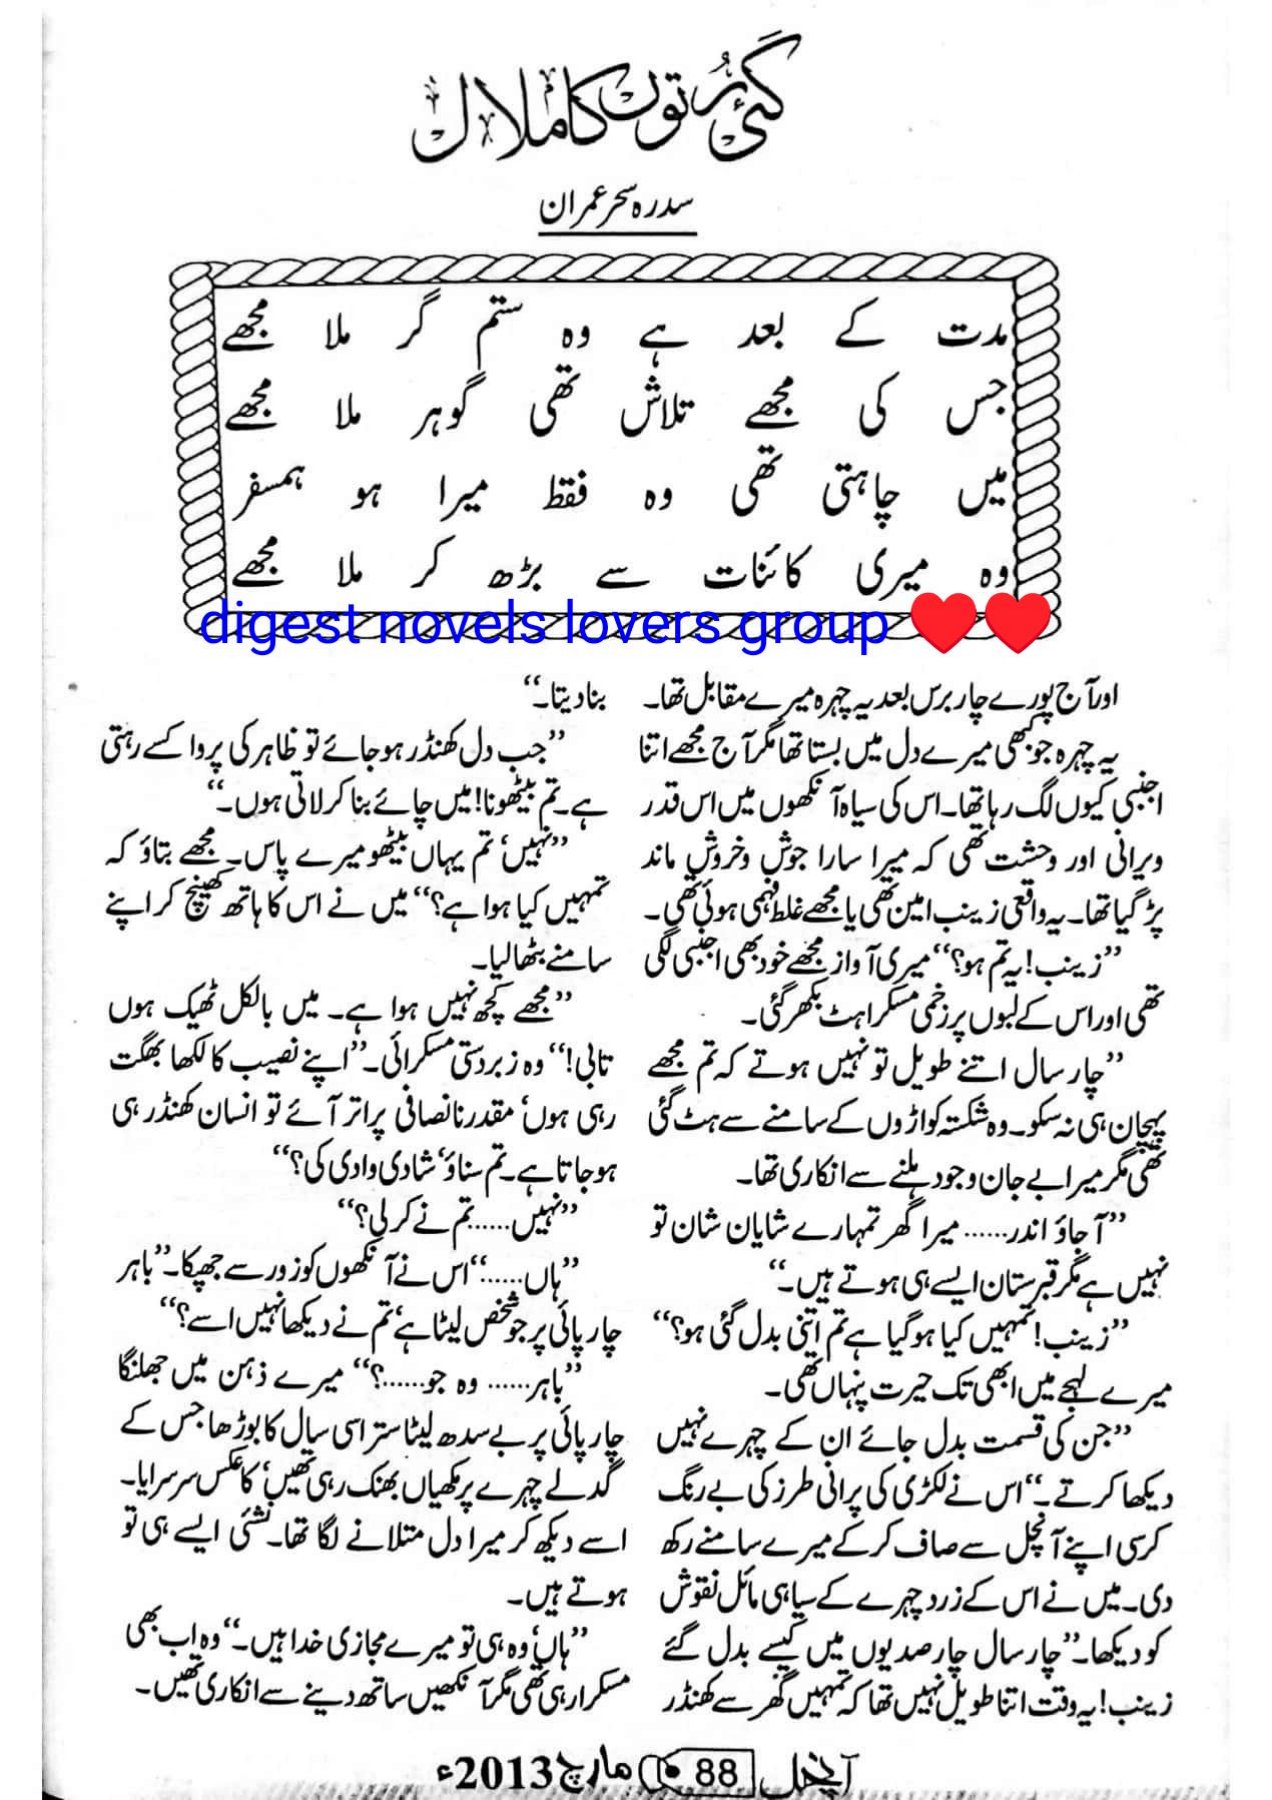 گئی رُتوں کا ملال
سدرہ سحر عمران
مدت کے بعد ہے وہ ستم گر ملا مجھے
جس کی مجھے تلاش تھی گوہر ملا مجھے
میں چاہتی تھی وہ فقط میرا ہو ہمسفر
وہ میری کائنات سے بڑھ کر ملا مجھے
digest novels lovers group ❤️❤️
اور آج پورے چار برس بعد یہ چہرہ میرے مقابل تھا۔
یہ چہرہ جو کبھی میرے دل میں بستا تھا مگر آج مجھے اتنا
اجنبی کیوں لگ رہا تھا۔ اس کی سیاہ آنکھوں میں اس قدر
ویرانی اور وحشت تھی کہ میرا سارا جوش وخروش ماند
پڑ گیا تھا۔ یہ واقعی زینب امین تھی یا مجھے غلط فہمی ہوئی تھی۔
”زینب! یہ تم ہو؟“ میری آواز مجھے خود بھی اجنبی لگی
تھی اور اس کے لبوں پر زخمی مسکراہٹ بکھر گئی۔
”چار سال اتنے طویل تو نہیں ہوتے کہ تم مجھے
پہچان ہی نہ سکو۔ وہ شکستہ کواڑوں کے سامنے سے ہٹ گئی
تھی مگر میرا بے جان وجود ہلنے سے انکاری تھا۔
”آ جاؤ اندر...... میرا گھر تمہارے شایان شان تو
نہیں ہے مگر قبرستان ایسے ہی ہوتے ہیں۔“
”زینب! تمہیں کیا ہو گیا ہے تم اتنی بدل گئی ہو؟“
میرے لہجے میں ابھی تک حیرت پنہاں تھی۔
”جن کی قسمت بدل جائے ان کے چہرے نہیں
دیکھا کرتے۔“ اس نے لکڑی کی پرانی طرز کی بے رنگ
کرسی اپنے آنچل سے صاف کر کے میرے سامنے رکھ
دی۔ میں نے اس کے زرد چہرے کے سیاہی مائل نقوش
کو دیکھا۔ ”چار سال چار صدیوں میں کیسے بدل گئے
زینب! یہ وقت اتنا طویل نہیں تھا کہ تمہیں گھر سے کھنڈر
بنا دیتا۔“
”جب دل کھنڈر ہو جائے تو ظاہر کی پروا کسے رہتی
ہے۔ تم بیٹھو نا! میں چائے بنا کر لاتی ہوں۔“
”نہیں‘ تم یہاں بیٹھو میرے پاس۔ مجھے بتاؤ کہ
تمہیں کیا ہوا ہے؟“ میں نے اس کا ہاتھ کھینچ کر اپنے
سامنے بٹھا لیا۔
”مجھے کچھ نہیں ہوا ہے۔ میں بالکل ٹھیک ہوں
تابی!“ وہ زبردستی مسکرائی۔ ”اپنے نصیب کا لکھا بھگت
رہی ہوں‘ مقدر ناانصافی پر اتر آئے تو انسان کھنڈر ہی
ہو جاتا ہے۔ تم سناؤ‘ شادی وادی کی؟“
”نہیں...... تم نے کر لی؟“
”ہاں......“ اس نے آنکھوں کو زور سے جھپکا۔ ”باہر
چارپائی پر جو شخص لیٹا ہے‘ تم نے دیکھا نہیں اسے؟“
”باہر...... وہ جو......؟“ میرے ذہن میں جھلنگا
چارپائی پر بے سدھ لیٹا ستر اسی سال کا بوڑھا جس کے
گدلے چہرے پر مکھیاں بھنک رہی تھیں‘ کا عکس سرسرایا۔
اسے دیکھ کر میرا دل متلانے لگا تھا۔ نشئی ایسے ہی تو
ہوتے ہیں۔
”ہاں‘ وہ ہی تو میرے مجازی خدا ہیں۔“ وہ اب بھی
مسکرا رہی تھی مگر آنکھیں ساتھ دینے سے انکاری تھیں۔
آنچل 88 مارچ 2013ء